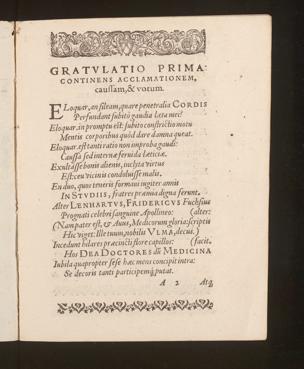 GRATVLATIO PRIMA
CONTINENS ACCLAMATIONEM,
caussam, & votum.
ELoquar, an sileam, quare penetralia CORDIS
Perfundant subitò gaudia læta mei?
Eloquar: in promptu est: subito constrictio motu
Mentis corporibus quòd dare damna queat.
Eloquar: est tanti ratio non improba gaudî:
Caussa sed internæ feruida lætitiæ.
Exultasse bonis alienis, inclyta virtus
Est: ceu vicinis condoluisse malis.
En duo, quos teneris formaui iugiter annis
IN STVDIIS, fratres præmia digna ferunt.
Alter LENHARTVS, FRIDERICVS Fuchsius
Prognati celebri sanguine Apollineo: (alter:
(Nam pater est, & Auus, Medicorum gloria: scriptis
Hic viget: Ille tuum, nobilis VLMA, decus.)
Incedunt hilares præcincti flore capillos: (facit.
Hos DEA DOCTORES dia MEDICINA
Iubila quapropter sese hæc mens concipit intra:
Se decoris tanti participemq́; putat.
A 2 Atq́;